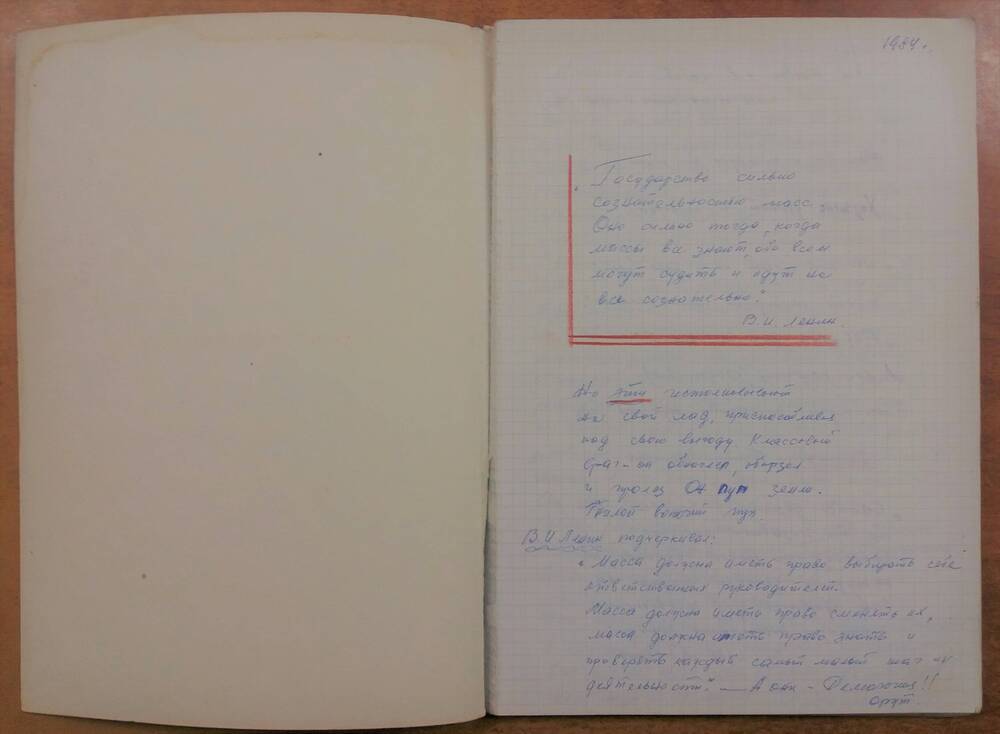 1984 г.
„Государство сильно
сознательностью масс.
Оно сильно тогда, когда
массы все знают, обо всем
могут судить и идут на
все сознательно."
В.И. Ленин.
Но эти истолковывают
на свой лад, приспосабливая
под свою выгоду. Классовый
враг - он обнаглел,
и пролез Он пуп земли.
Гнилой
В.И Ленин подчеркивал:
„Масса должна иметь право выбирать себе
ответственных руководителей.
Масса должна иметь право сменять их,
масса должна иметь право знать и
проверять каждый самый малый шаг их
деятельности." — А они - Демагогия!!
Орут.